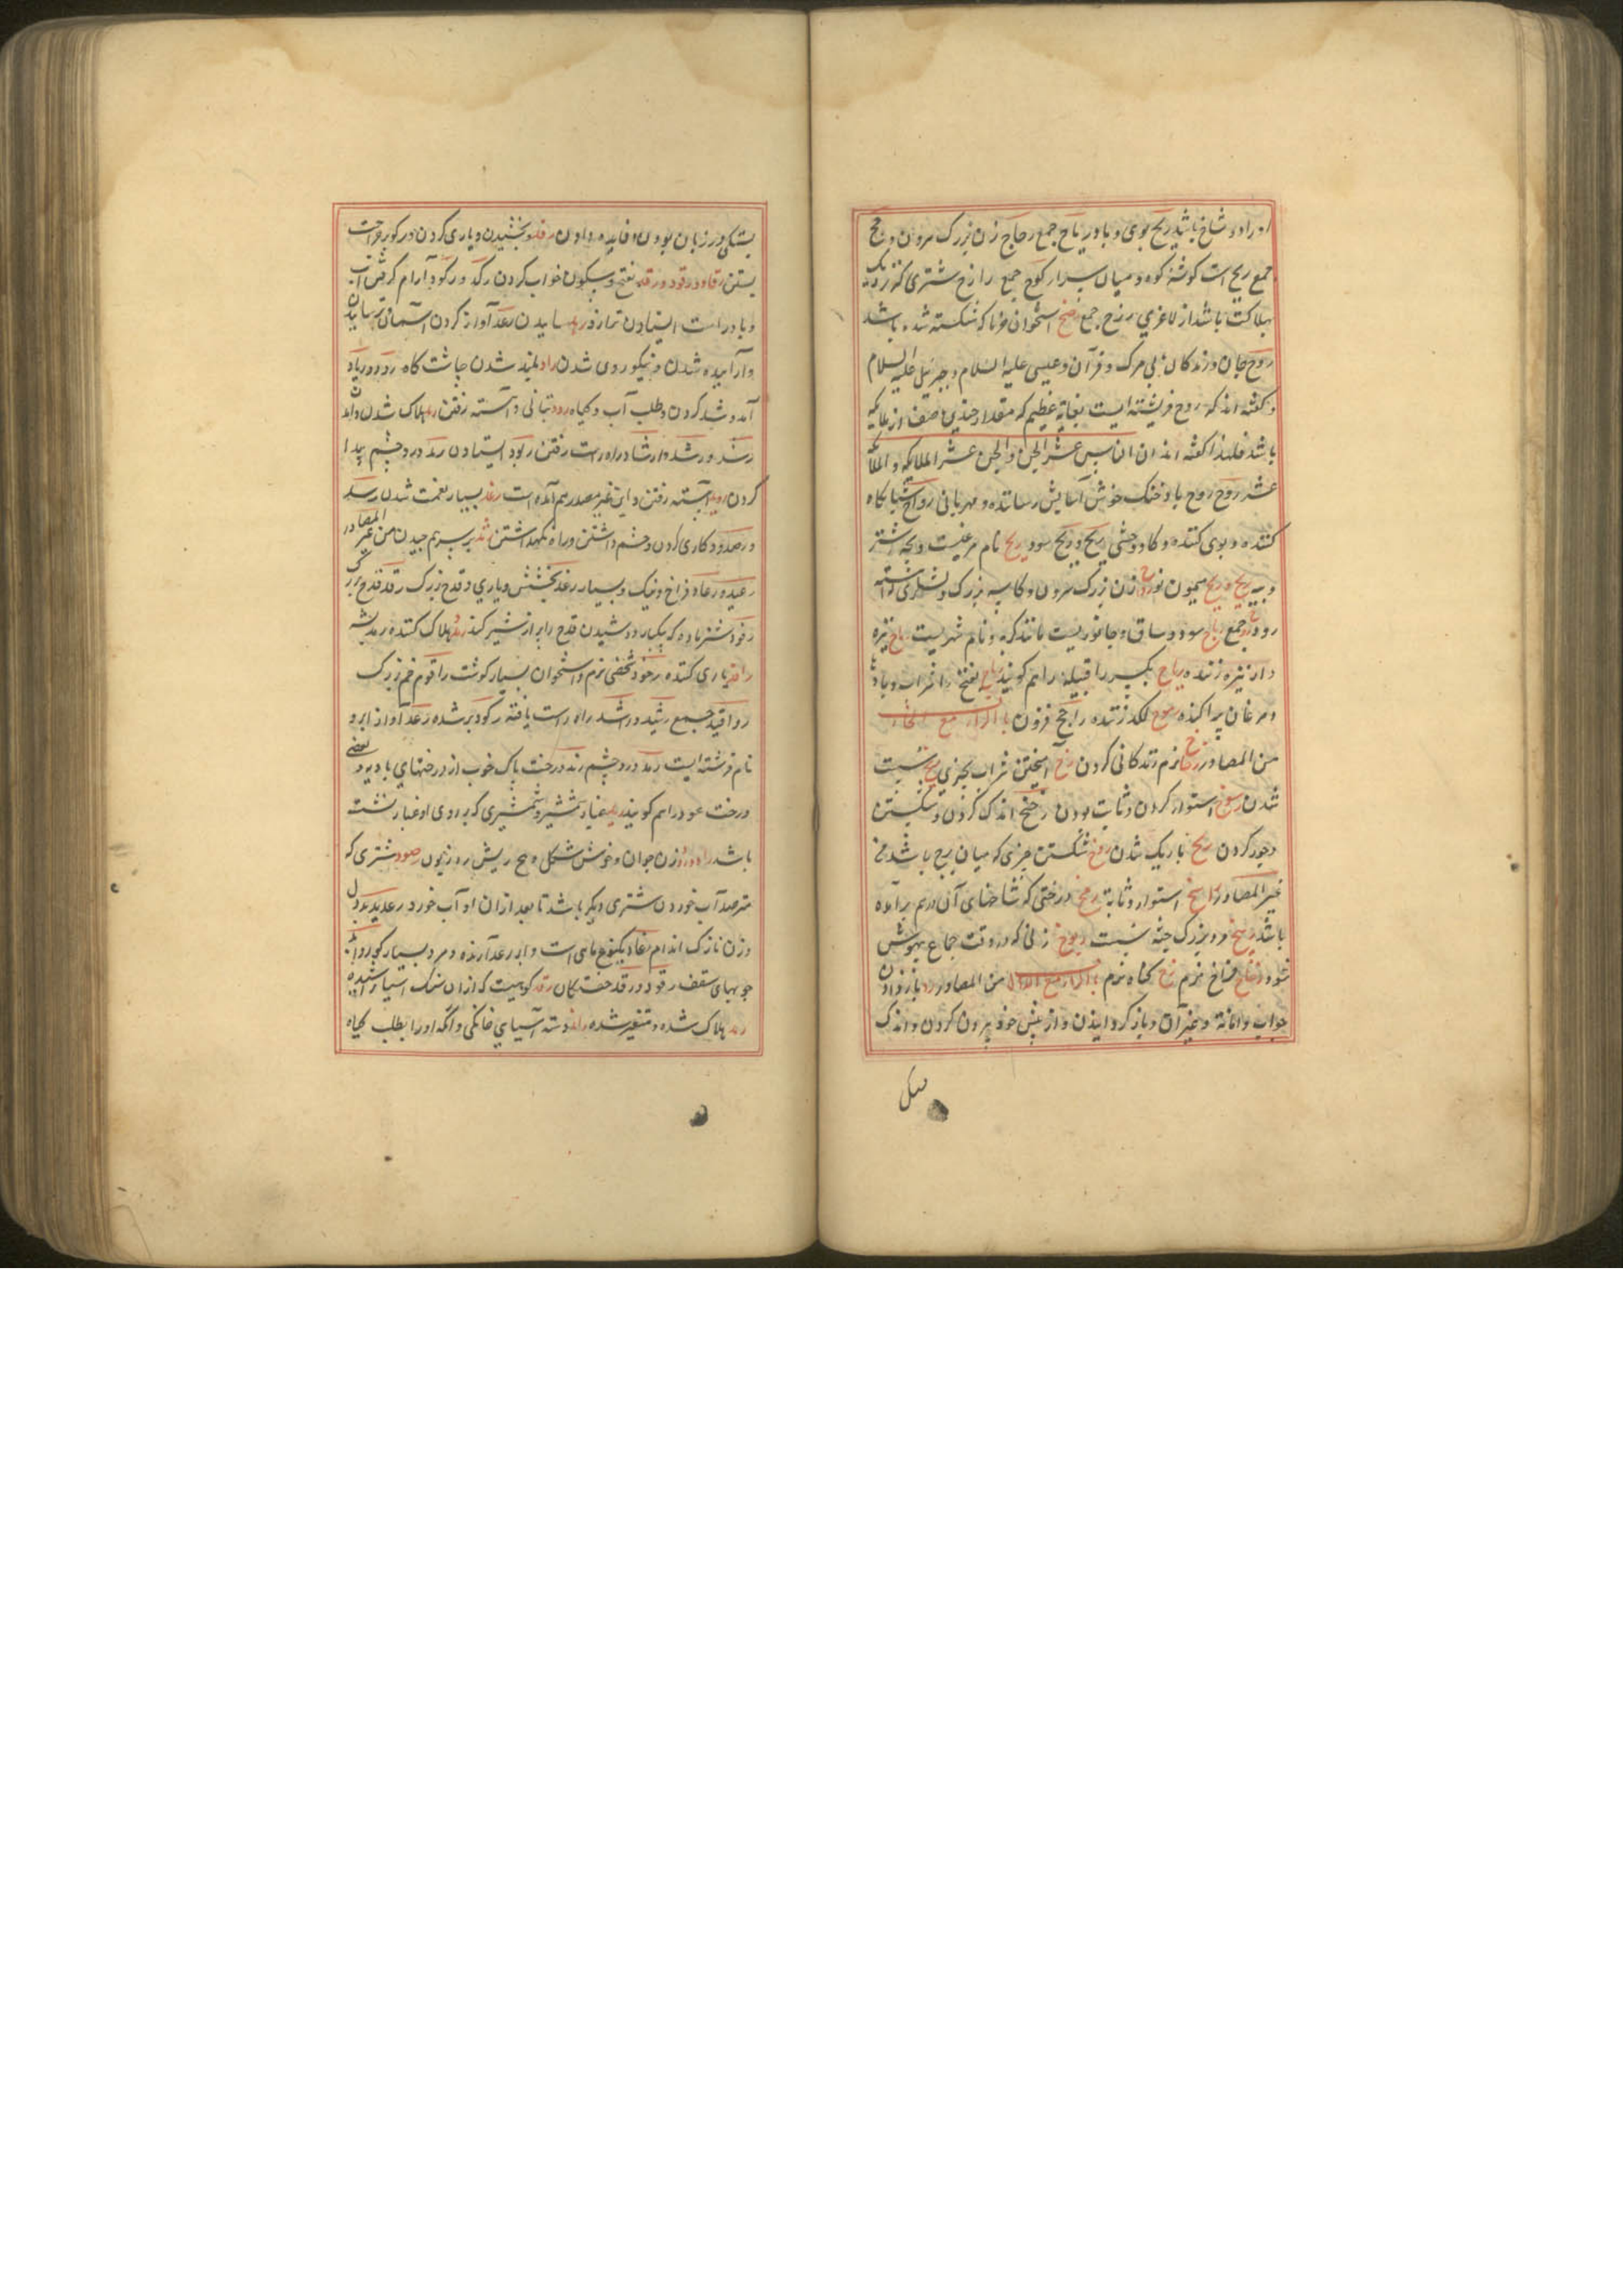 او را دو شاخ باشد ریح بوی و باد ریاح جمع رجاج زن بزرگ سرون و رجح
جمع ریح است گوشه کوه و میان سرا رکوح جمع رازح شتری که نزدیک
بهلاکت باشد از لاغری رزح جمع رضح استخوان خرما که شکسته شده باشد
روح جان و زندگان بی مرگ و قرآن و عیسی علیه السلام و جبرئیل علیه السلام
و گفته اند که روح فرشته ایست بغایة عظیم که مقدار چندین صنف از ملایکه
باشد فلهذا گفته اند ان الانس عشر الجن و الجن عشر الملایکه و الملایکه
عشر روح روح باد خنک خوش آسایش رساننده و مهربانی روایح شبانگاه
کننده و بوی کننده و گاو وحشی ریح و ریح سود ربح نام مرغیست و بچه شتر
و پیه ربیح و ربح میمون نر رداح زن بزرگ سرون و کاسه بزرگ و لشکری آراسته
رود ردح جمع رباح سود و ساق و جانوریست مانند گربه و نام شهریست رامح نیزه
دار و نیزه زننده ریاح بکسر را قبیله را هم گویند ریاح بفتح را شراب و بادها
و مرغان پراکنده رموح لگد زننده راجح فزون باب الراء مع الخاء
من المصادر رخخ نرم زندگانی کردن رخ آمیختن شراب بچیزی ریخ سست
شدن رسوخ استوار کردن و ثابت بودن رضخ اندک کردن و شکستن
و خورد کردن ریخ باریک شدن رضخ شکستن چیزی که میان پیچ باشد من
غیر المصادر راسخ استوار و ثابة رمخ درختی که شاخهای آن درهم برآمده
باشد ربیخ مرد بزرگ جثه سست ربوخ زنی که در وقت جماع بیهوش
شود رخاخ فراخ نرم رخ گیاه نرم باب الراء مع الدال من المصادر رد باز دادن
جواب و امانة و غیر آن و باز گردانیدن و از پیش خود بیرون کردن و اندک
بستگی در زبان بودن و فایده دادن رفد بخشیدن و یاری کردن و رکوبه جراحت
بستن رقاد و رقود و رقد بفتح و سکون خواب کردن رکد و رکود آرام گرفتن آب
و باد و راست ایستادن ترازو رعد ساییدن رعد آواز کردن آسمان و ترسانیدن
و آرامیده شدن و نیکوروی شدن راد بلند شدن چاشت گاه رود و ریاد
آمد و شد کردن و طلب آب و گیاه رود شبانی و آهسته رفتن رمد هلاک شدن
رشد و رشد و رشاد راه راست رفتن ربود ایستادن رمد درد چشم پیدا
کردن روید آهسته رفتن و این غیر مصدر هم آمده است رغد بسیار نعمت شدن رصد
و رصد و دکاری کردن و چشم داشتن و راه نگهداشتن رثد بر سر هم چیدن من غیر المصادر
رغید و رغاد فراخ و نیک و بسیار رفد بخشش و یاری و قدح بزرگ رفد قدح بزرگ
رفود شتر ماده که بیکبار دوشیدن قدح را پر از شیر کند رمد هلاک کننده رمد پشه
رافد یاری کننده رخود شخصی نرم استخوان بسیار گوشت راقود خم بزرگ
رواقید جمع رشید و راشد راه راست یافته رکود پر شده رعد آواز ابر و
نام فرشته ایست رمد درد چشم رند درخت پاک خوب از درختهای بادیه و بعضی
درخت عود را هم گویند ربد غبار شمشیر و شمشیری که بر روی او غبار نشسته
باشد راد و رود زن جوان و خوش شکل و بیخ ریش رود زبون رصود شتری که
مترصد آب خوردن شتری دیگر باشد تا بعد از آن او آب خورد رعدید بددل
و زن نازک اندام رعاد یک نوع ماهی است و ابر رعد آرنده و مرد بسیار گوی روافد
چوبهای سقف رقود و رقد خفتگان رقد کوهیست که از آن سنگ آسیا تراشیده
رمد هلاک شده و متغیر شده رائد دسته آسیای خانگی و آنکه او را بطلب گیاه
بستگی